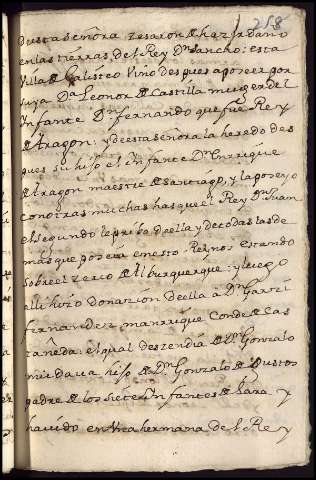 258
desta señora zesaron de hazer daño
en las tierras del Rey Dn sancho: esta
Villa de Galisteo vino despues a poseer por
suya Da Leonor de Castilla muger del
Infante Dn fernando que fue Rey
de Aragon: y de esta señora la heredo des
pues su hijo el Infante Dn Enrrique
de Aragon maestre de santiago, y la poseyo
con otras muchas hasque el Rey Dn Juan
el segundo le pribo de ella y de todas las de
mas que poseia en estos Reynos estando
sobre el zerco de Alburquerque: y luego
el hizo donazion de ella à Dn Garzi
fernandez manrrique Conde de Cas
tañeda: el qual deszendia de Dn Gonzalo
mudarra hijo de Dn Gonzalo de Bustos
padre de los siete Infantes de Lara y
havido en Vna hermana del Rey